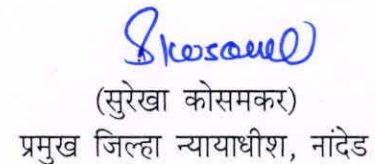 (सुरेखा कोसमकर)
प्रमुख जिल्हा न्यायाधीश, नांदेड